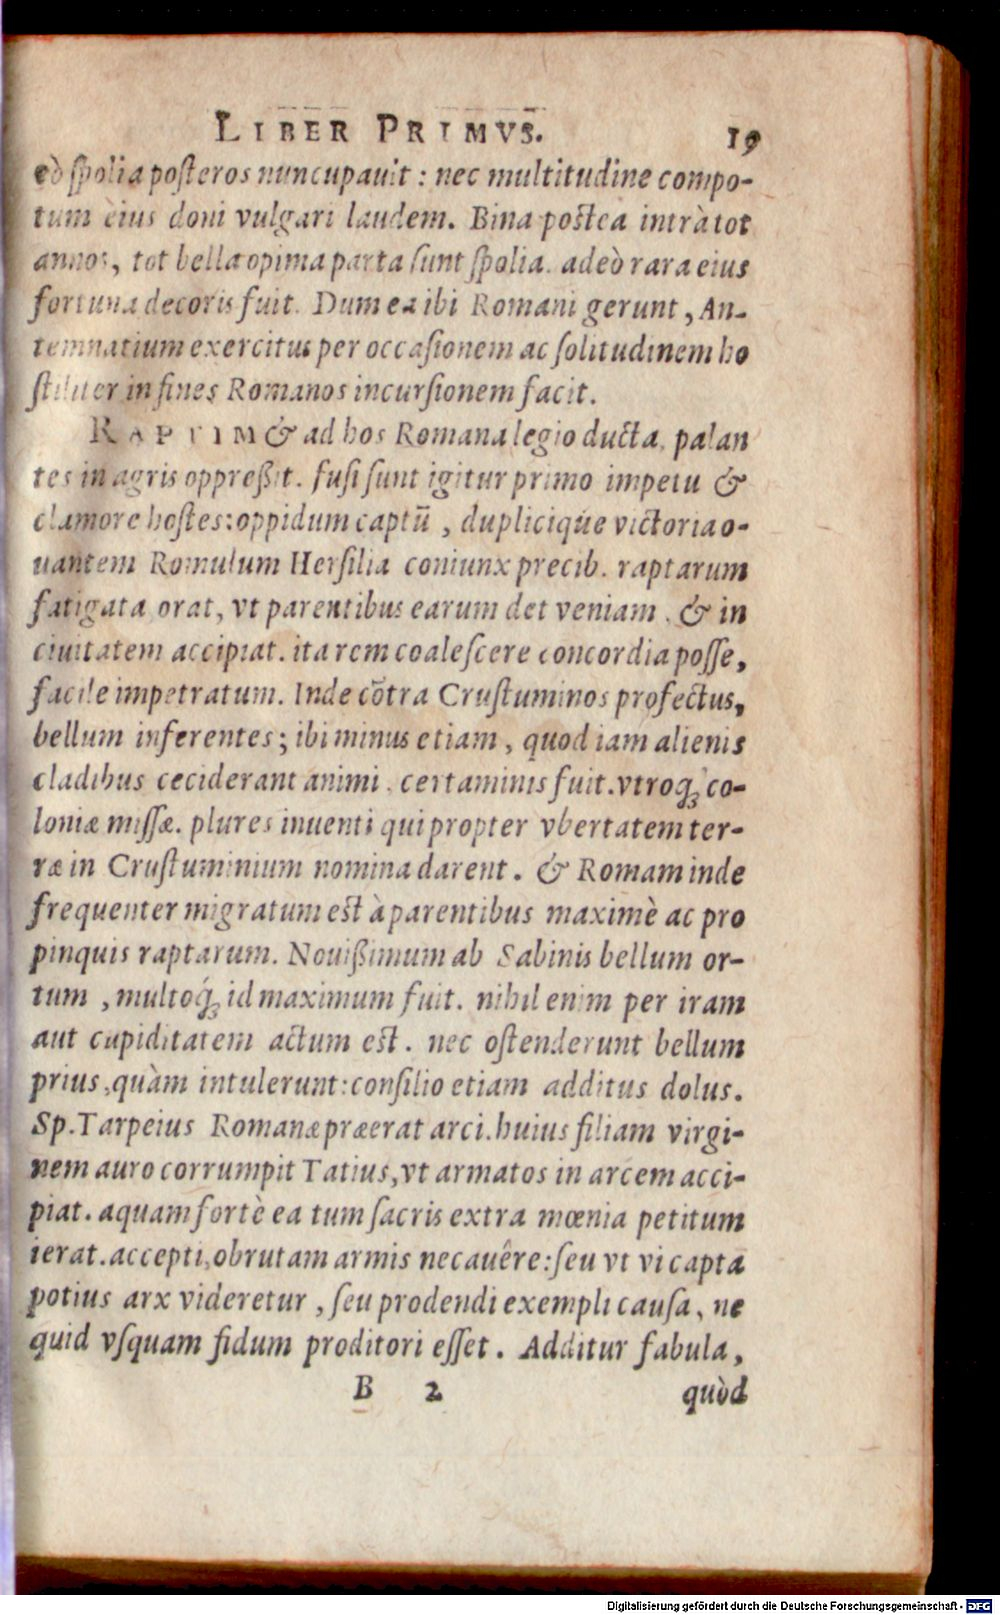 LIBER PRIMVS. 19
eò ſpolia poſteros nuncupauit : nec multitudine compo-
tum eius doni vulgari laudem. Bina postea intrà tot
annos, tot bella opima parta ſunt ſpolia. adeò rara eius
fortuna decoris fuit. Dum ea ibi Romani gerunt, An-
temnatium exercitus per occaſionem ac ſolitudinem ho
ſtiliter in fines Romanos incurſionem facit.
RAPTIM & ad hos Romana legio ducta, palan
tes in agris oppreßit. fuſi ſunt igitur primo impetu &
clamore hoſtes: oppidum captũ, duplicique victoria o-
uantem Romulum Herſilia coniunx precib. raptarum
fatigata orat, vt parentibus earum det veniam, & in
ciuitatem accipiat. ita rem coaleſcere concordia poſſe,
facile impetratum. Inde cõtra Cruſtuminos profectus,
bellum inferentes; ibi minus etiam, quod iam alienis
cladibus ceciderant animi, certaminis fuit. vtroq́; co-
loniæ miſſæ. plures inuenti qui propter vbertatem ter-
ræ in Cruſtuminium nomina darent. & Romam inde
frequenter migratum est à parentibus maximè ac pro
pinquis raptarum. Nouißimum ab Sabinis bellum or-
tum, multoq́; id maximum fuit. nihil enim per iram
aut cupiditatem actum est. nec oſtenderunt bellum
prius, quàm intulerunt: conſilio etiam additus dolus.
Sp. Tarpeius Romanæ præerat arci. huius filiam virgi-
nem auro corrumpit Tatius, vt armatos in arcem acci-
piat. aquam fortè ea tum ſacris extra mœnia petitum
ierat. accepti, obrutam armis necauêre: ſeu vt vi capta
potius arx videretur, ſeu prodendi exempli cauſa, ne
quid vſquam fidum proditori eſſet. Additur fabula,
B 2 quòd
Digitalisierung gefördert durch die Deutsche Forschungsgemeinschaft - DFG